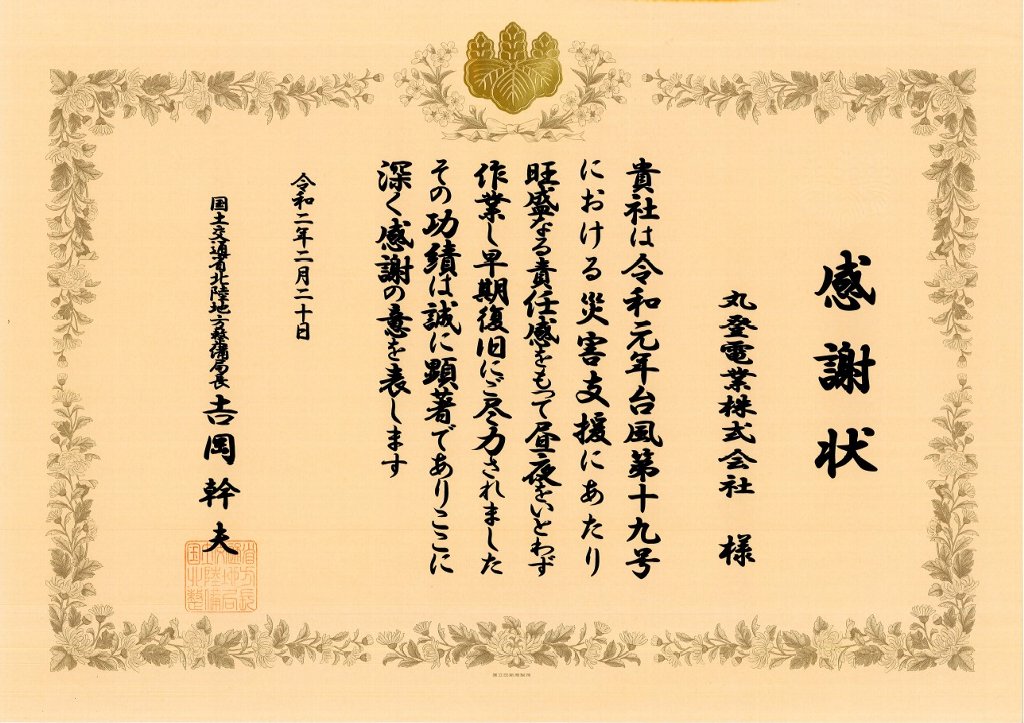 感謝状
丸登電業株式会社 様
貴社は令和元年台風第十九号
における災害支援にあたり
旺盛なる責任感をもって昼夜をいとわず
作業し早期復旧にご尽力されました
その功績は誠に顕著でありここに
深く感謝の意を表します
令和二年二月二十日
国土交通省北陸地方整備局長 吉岡幹夫